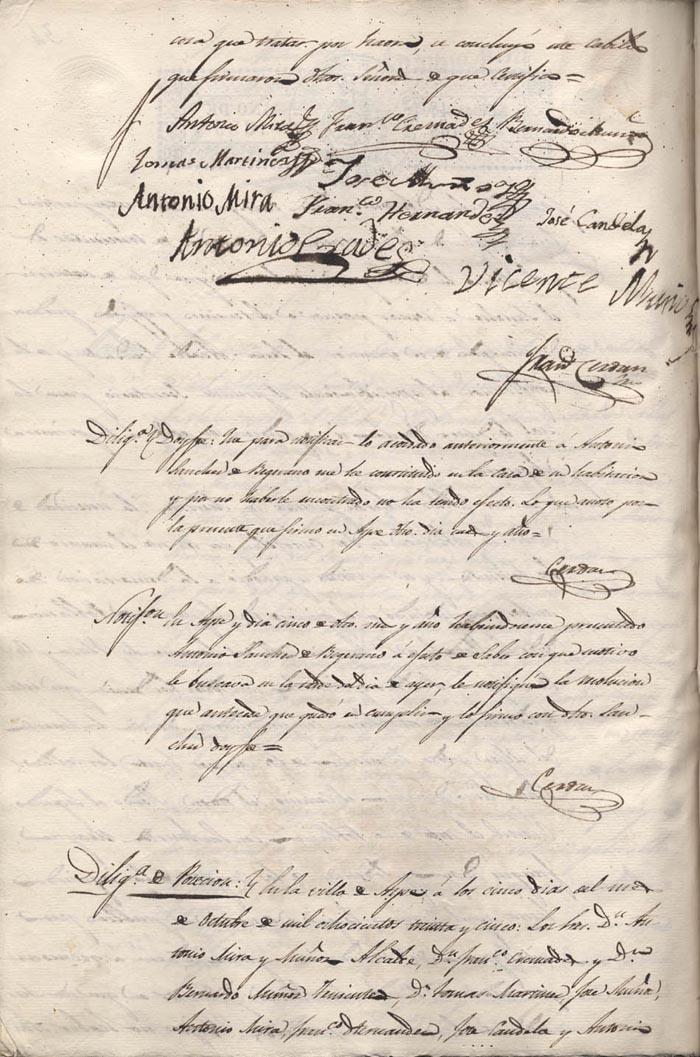 cosa que tratar por haora, se concluyó este Cabildo
que firmaron dhos. Señores de que Certifico =
Antonio Mira Fran.co Cremades Bernardo Muñoz
Tomas Martinez Jose Muñoz
Antonio Mira Fran.co Hernandez José Candela
Antonio Prades Vicente Muñoz
Fran.co Cerdan
Dilig.a Y Doyfe: Que para notificar lo acordado anteriormente a Antonio
Sanchez de Bejerano me he constituido en la Casa de su habitacion
y por no haberle encontrado no ha tenido efecto. Lo que anoto por
la presente que firmo en Aspe dho. dia mes y año =
Cerdan
Notif.on En Aspe y dia cinco de dho. mes y año habiendoseme presentado
Antonio Sanchez de Bejerano á efecto de Saber con que motivo
le buscava en la tarde del dia de ayer, le notifiqué la resolucion
que antecede que quedó en cumplir y lo firmo con dho. San-
chez doyfe =
Cerdan
Dilig.a de Posecion: En la villa de Aspe á los cinco dias del mes
de Octubre de mil ochocientos treinta y cinco: Los Sres. D.n An-
tonio Mira y Muñoz Alcalde, D.n Fran.co Cremades y D.n
Bernardo Muñoz Tenientes, D.n Tomas Martinez, Jose Muñoz,
Antonio Mira, Fran.co Hernandez, Jose Candela y Antonio